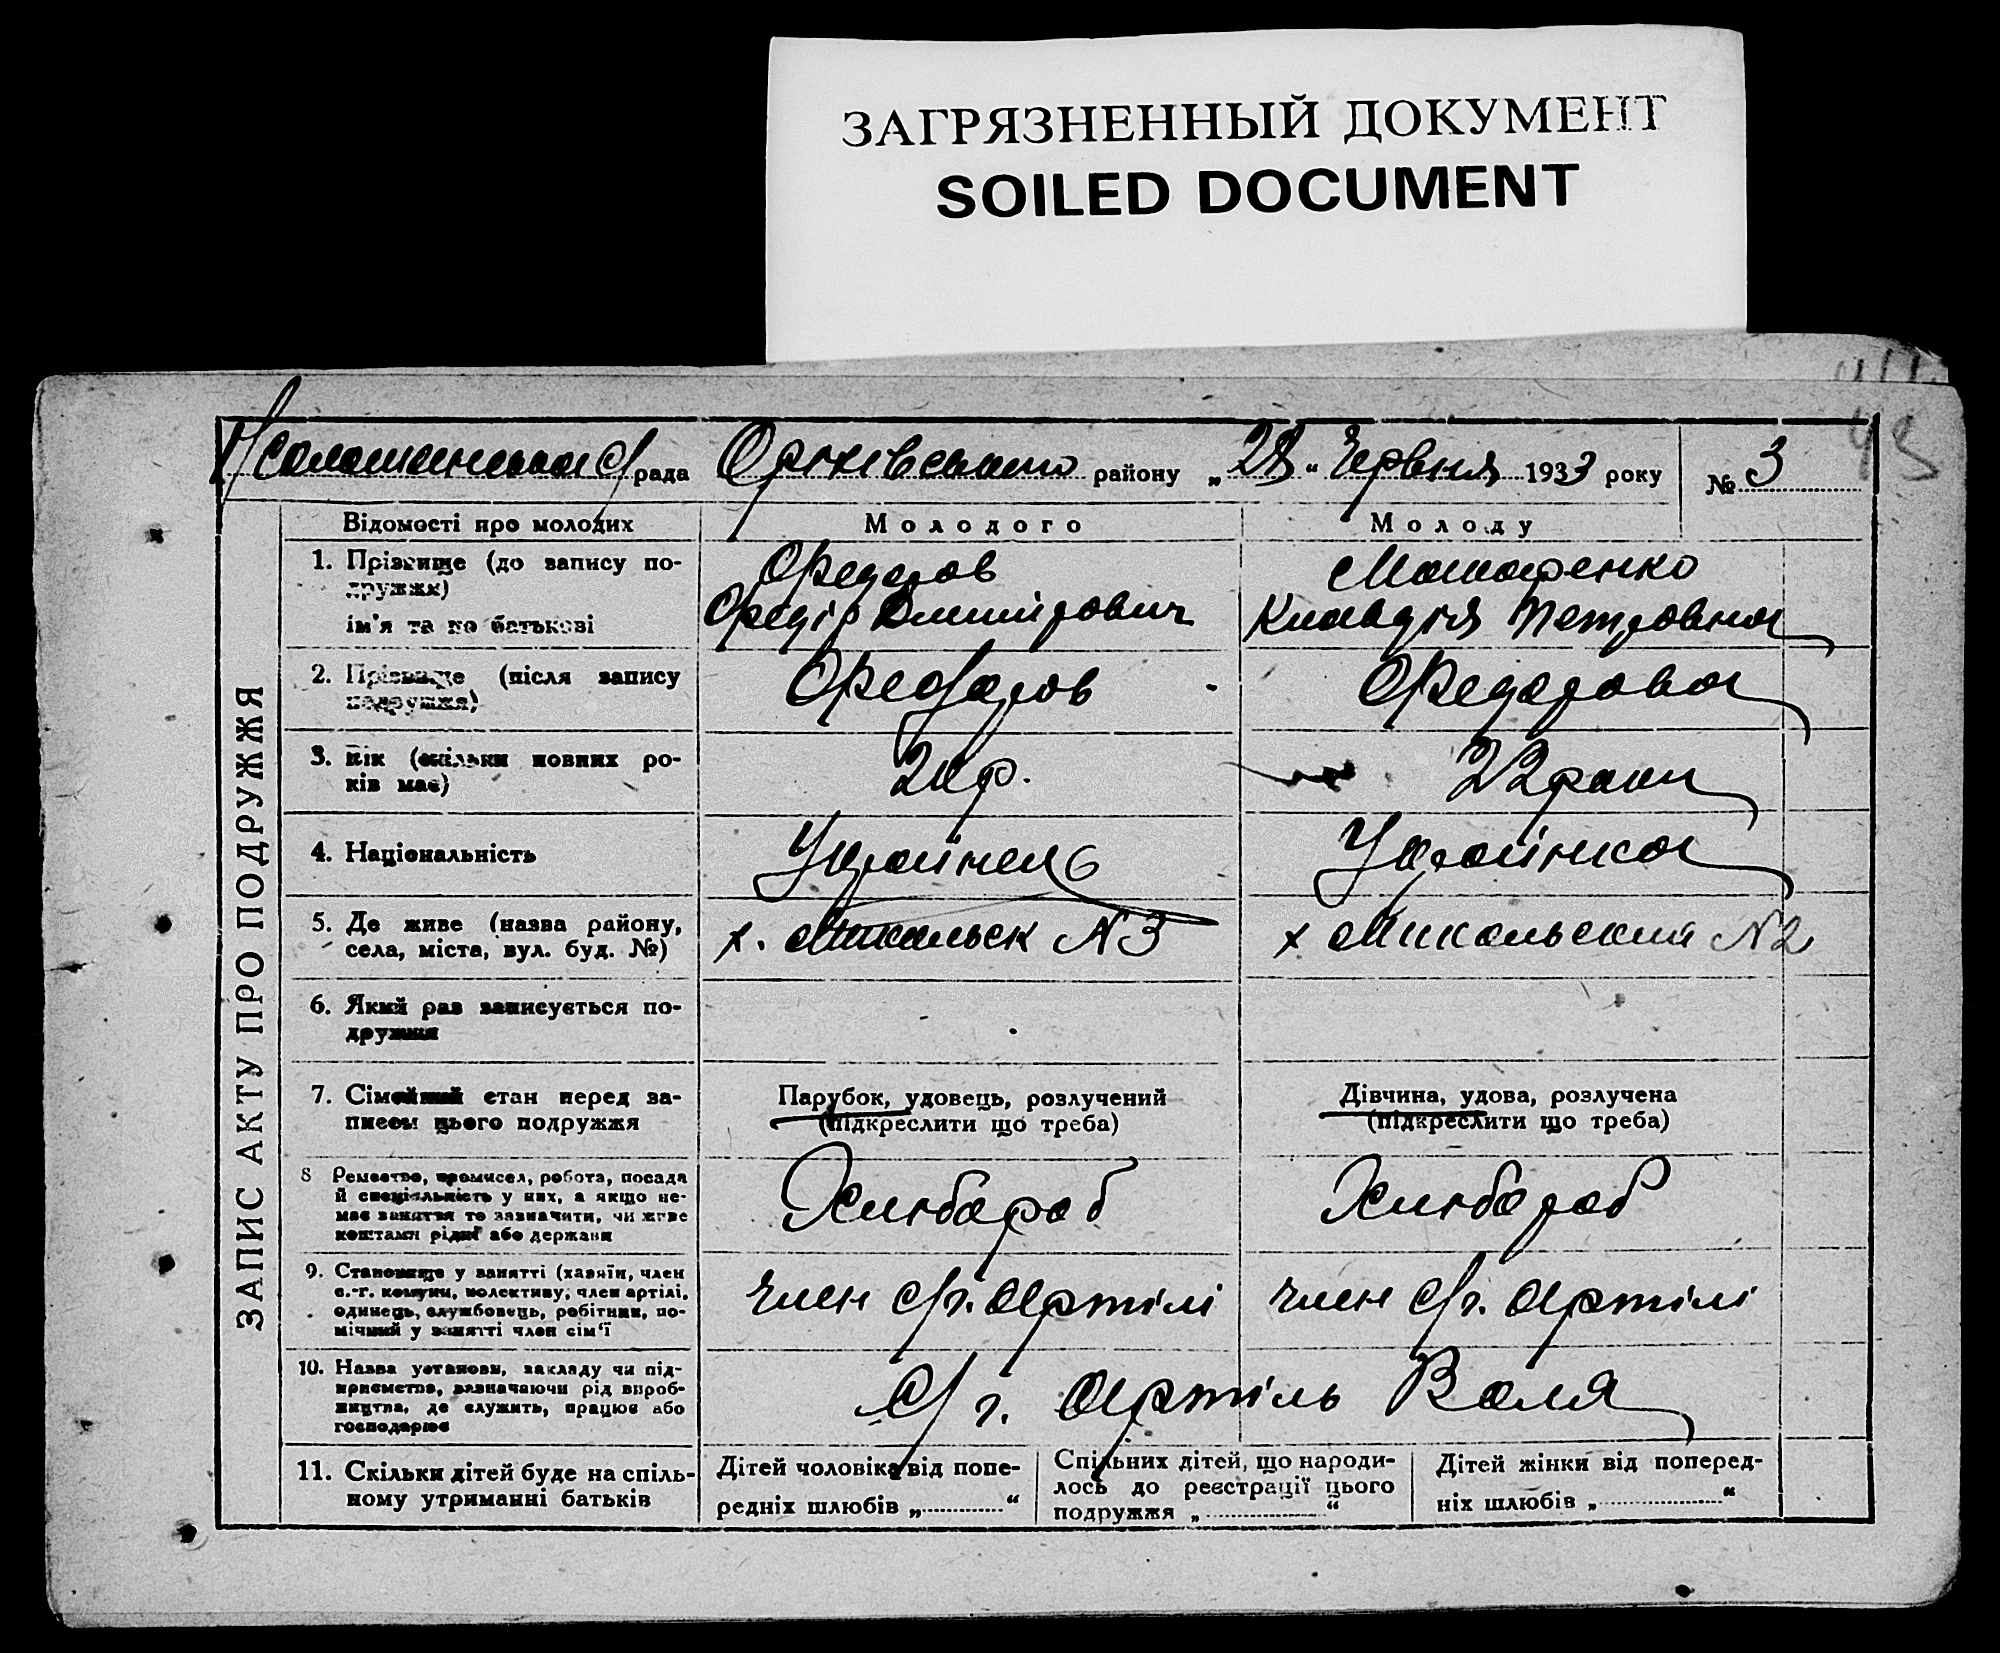 ЗАГРЯЗНЕННЫЙ ДОКУМЕНТ
SOILED DOCUMENT
43
рада Оріхівського району „28“ Червня 1933 року № 3
ЗАПИС АКТУ ПРО ПОДРУЖЖЯ
Відомості про молодих Молодого Молоду
1. Прізвище (до запису по-
дружжя)
Федоров Макаренко
ім'я та по батькові Федір Дмитрович Клавдія Петровна
2. Прізвище (після запису
подружжя)
Федоров Федорова
3. Вік (скільки повних ро-
ків має)
р. 22 роки
4. Національність Українець Українка
5. Де живе (назва району,
села, міста, вул. буд. №)
х. Микольск №3 х Микольский №2
6. Який раз записується по-
дружжя
7. Сімейний стан перед за-
писом цього подружжя
Парубок, удовець, розлучений
(підкреслити що треба)
Дівчина, удова, розлучена
(підкреслити що треба)
8 Ремество, промисел, робота, посада
й спеціяльність у них, а якщо не-
має заняття то зазначити, чи живе
коштами рідні або держави
Хлібороб Хлібороб
9. Становище у занятті (хазяїн, член
с.-г. комуни, колективу, член артілі,
одинець, службовець, робітник, по-
мічний у занятті член сім'ї
член с/г. Артілі член с/г. Артілі
10. Назва установи, закладу чи під-
приємства, зазначаючи рід вироб-
ництва, де служить, працює або
господарює
С/г. Артіль Воля
11. Скільки дітей буде на спіль-
ному утриманні батьків
Дітей чоловіка від попе-
редніх шлюбів „ “
Спільних дітей, що народи-
лось до реєстрації цього
подружжя „ “
Дітей жінки від поперед-
ніх шлюбів „ “